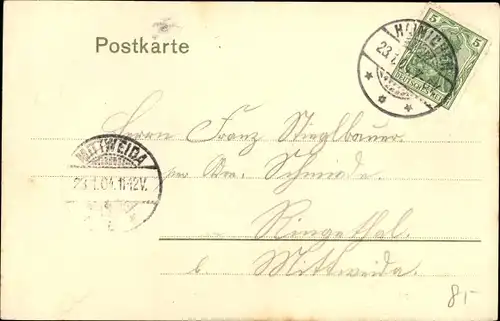 Postkarte
5 5
DEUTSCHES REICH
23.1.
MITTWEIDA
23.1.04.11-12V.
Herrn Franz Stieglbauer.
Schmiede.
Ringethal
b. Mittweida.
8,-